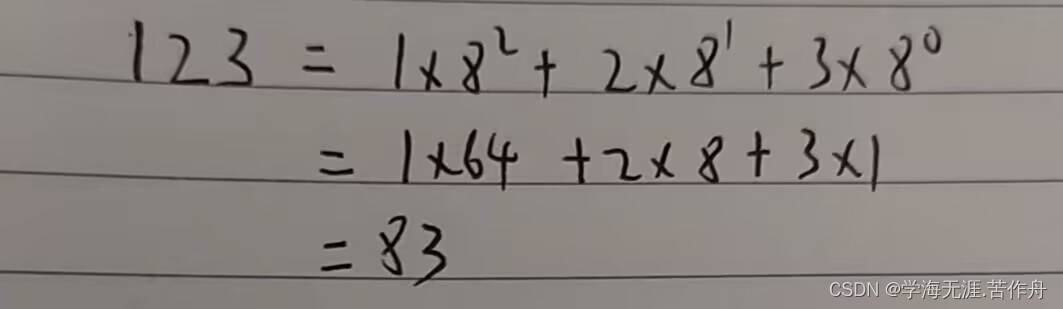 123 = 1×8² + 2×8¹ + 3×8⁰
= 1×64 + 2×8 + 3×1
= 83
CSDN @学海无涯.苦作舟